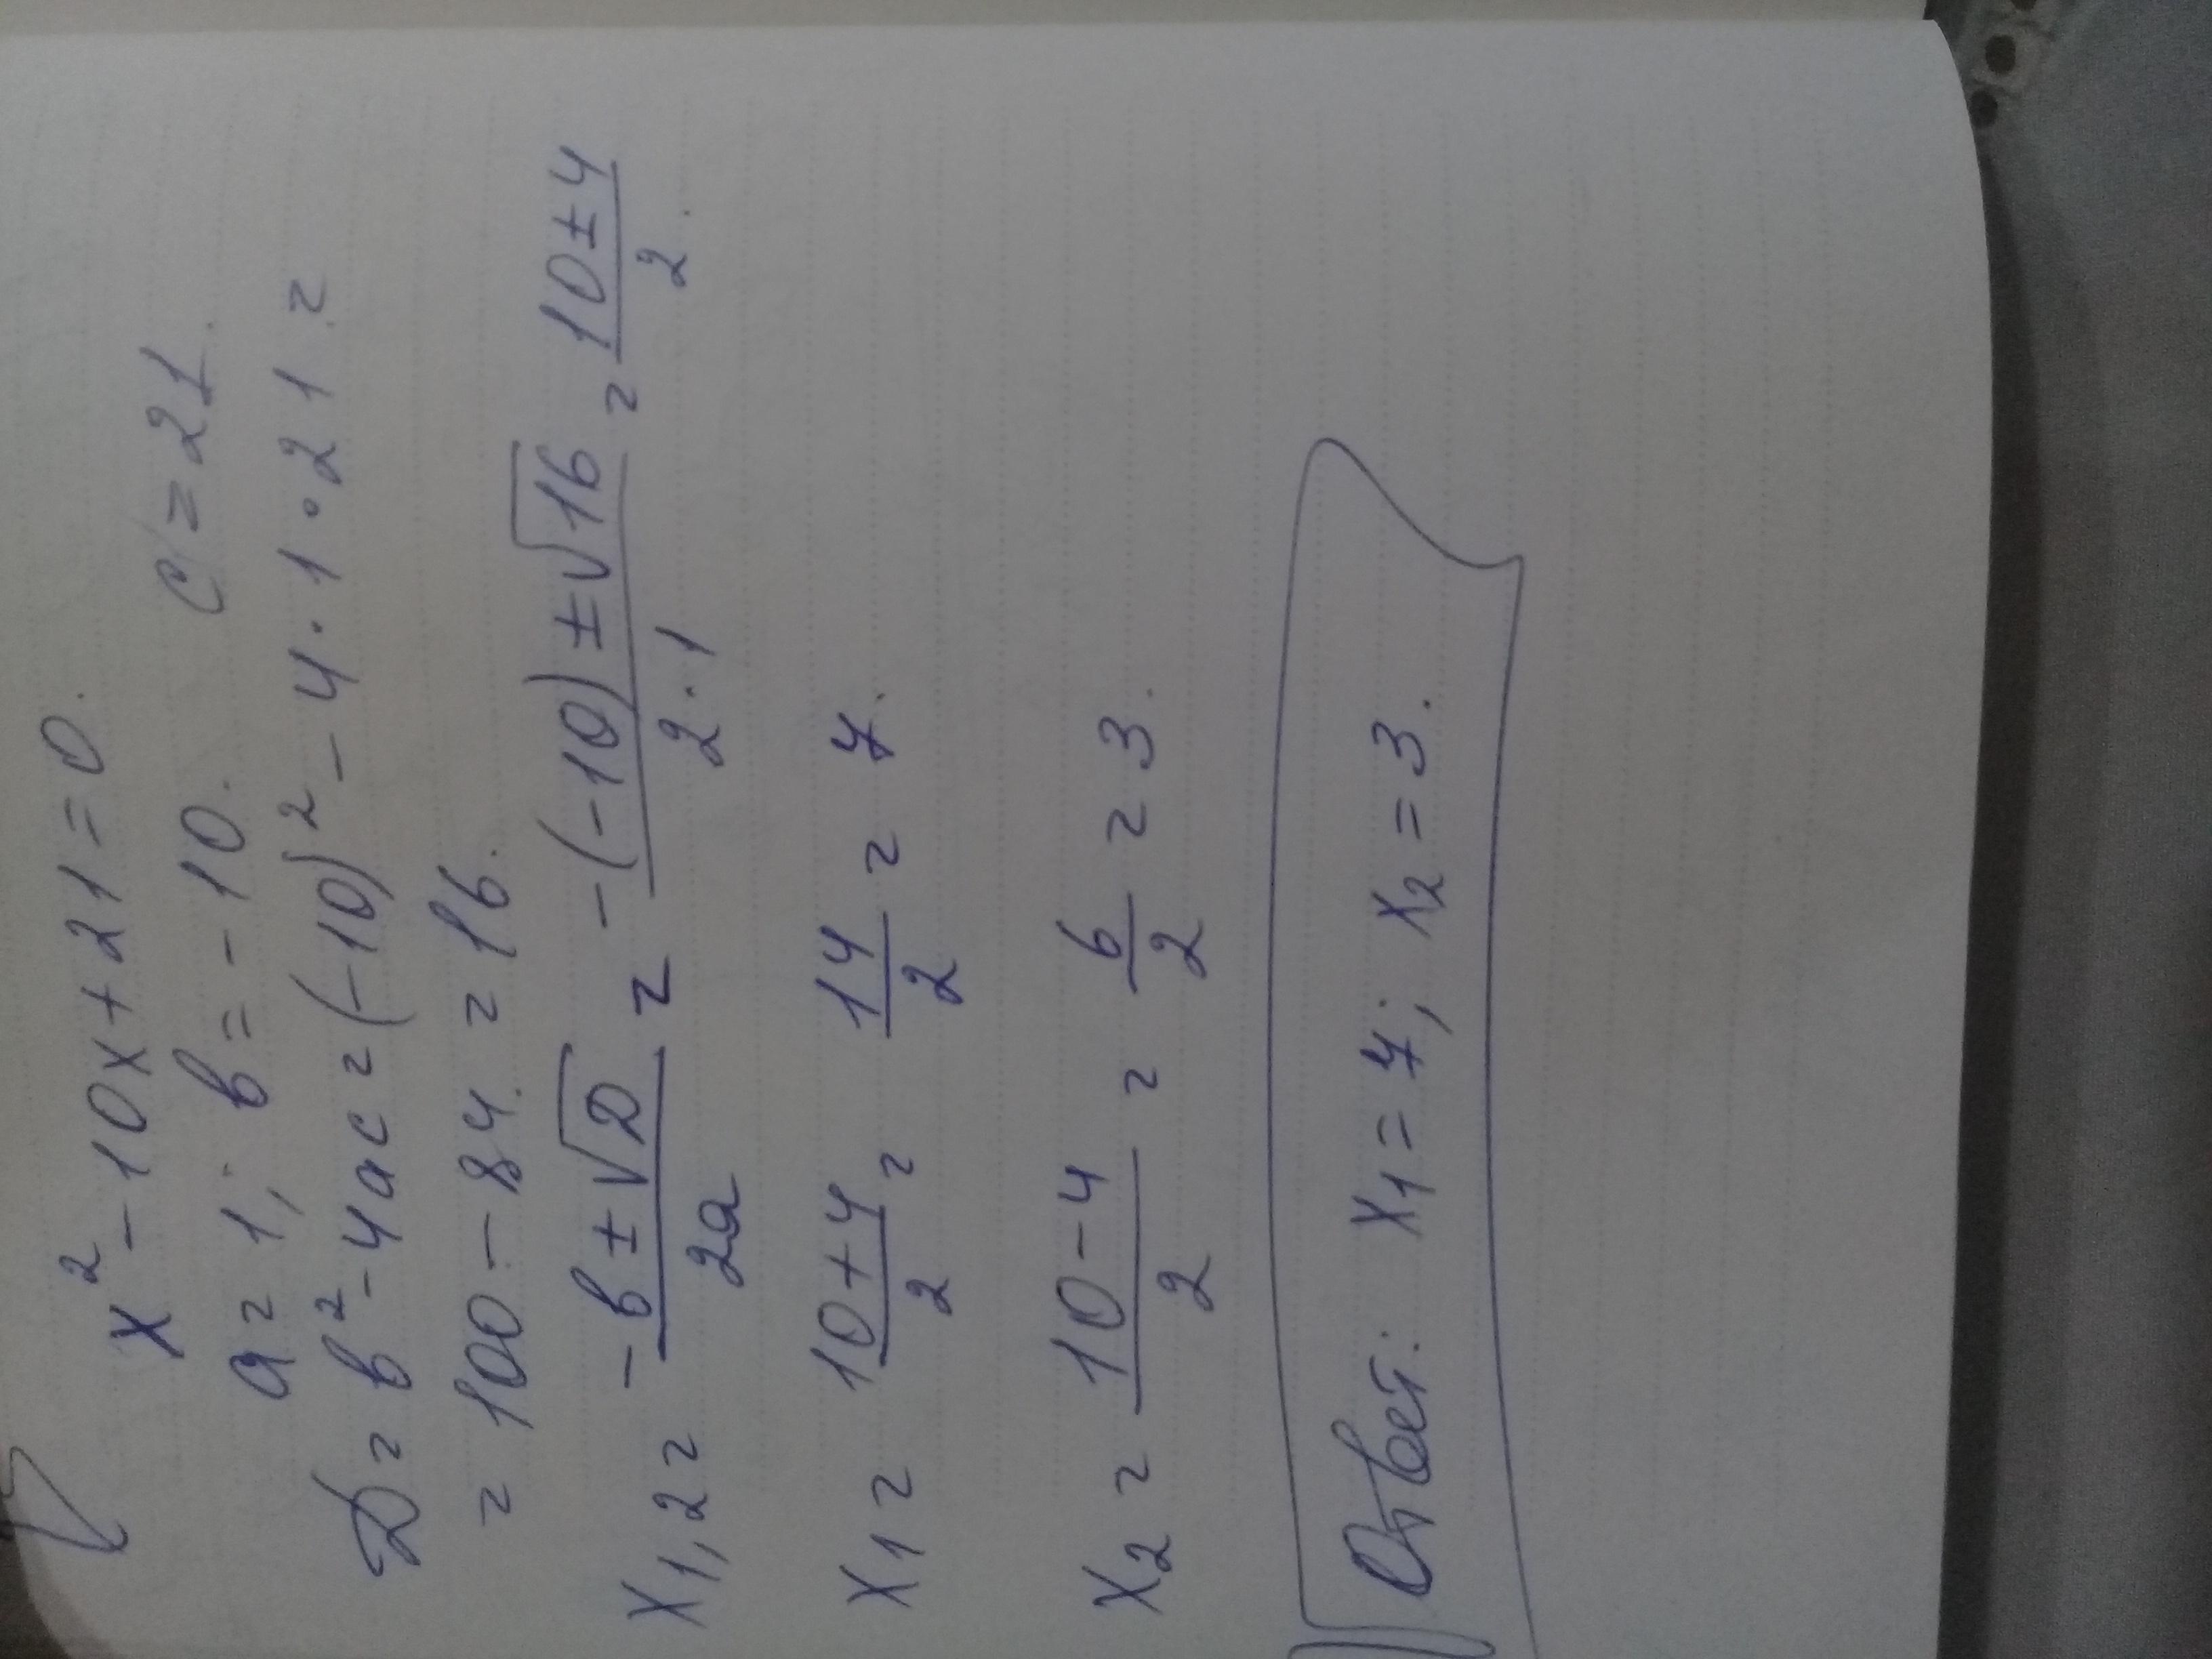 x² - 10x + 21 = 0.
a = 1; b = -10. c = 21.
D = b² - 4ac = (-10)² - 4 · 1 · 21 =
= 100 - 84 = 16.
x1,2 = (-b ± √D)/(2a) = (-(-10) ± √16)/(2 · 1) = (10 ± 4)/2.
x1 = (10 + 4)/2 = 14/2 = 7.
x2 = (10 - 4)/2 = 6/2 = 3.
Ответ: x1 = 7; x2 = 3.